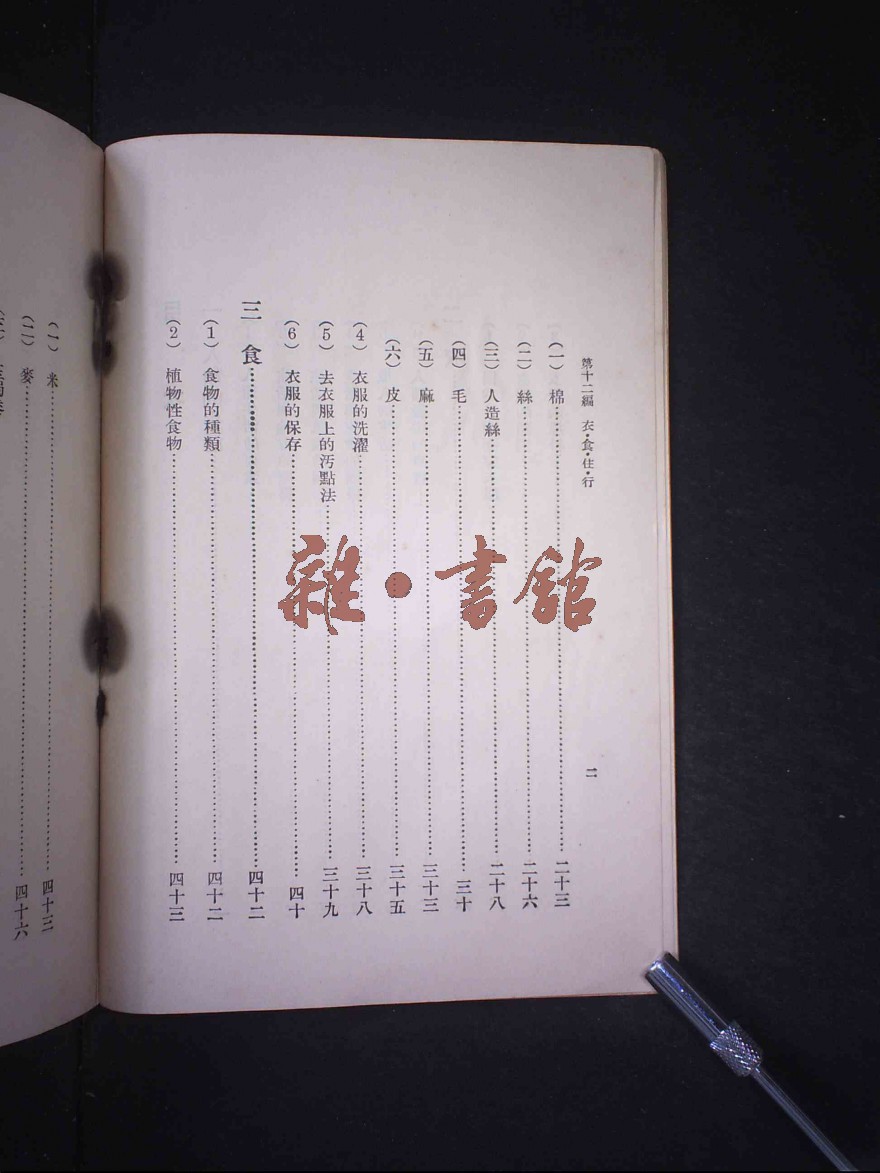 第十二編　衣・食・住・行
二
(一)　棉……二十三
(二)　絲……二十六
(三)　人造絲……二十八
(四)　毛……三十
(五)　麻……三十三
(六)　皮……三十五
(4)　衣服的洗濯……三十八
(5)　去衣服上的汚點法……三十九
(6)　衣服的保存……四十
三　食……四十二
(1)　食物的種類……四十二
(2)　植物性食物……四十三
(一)　米……四十三
(二)　麥……四十六
雜・書館